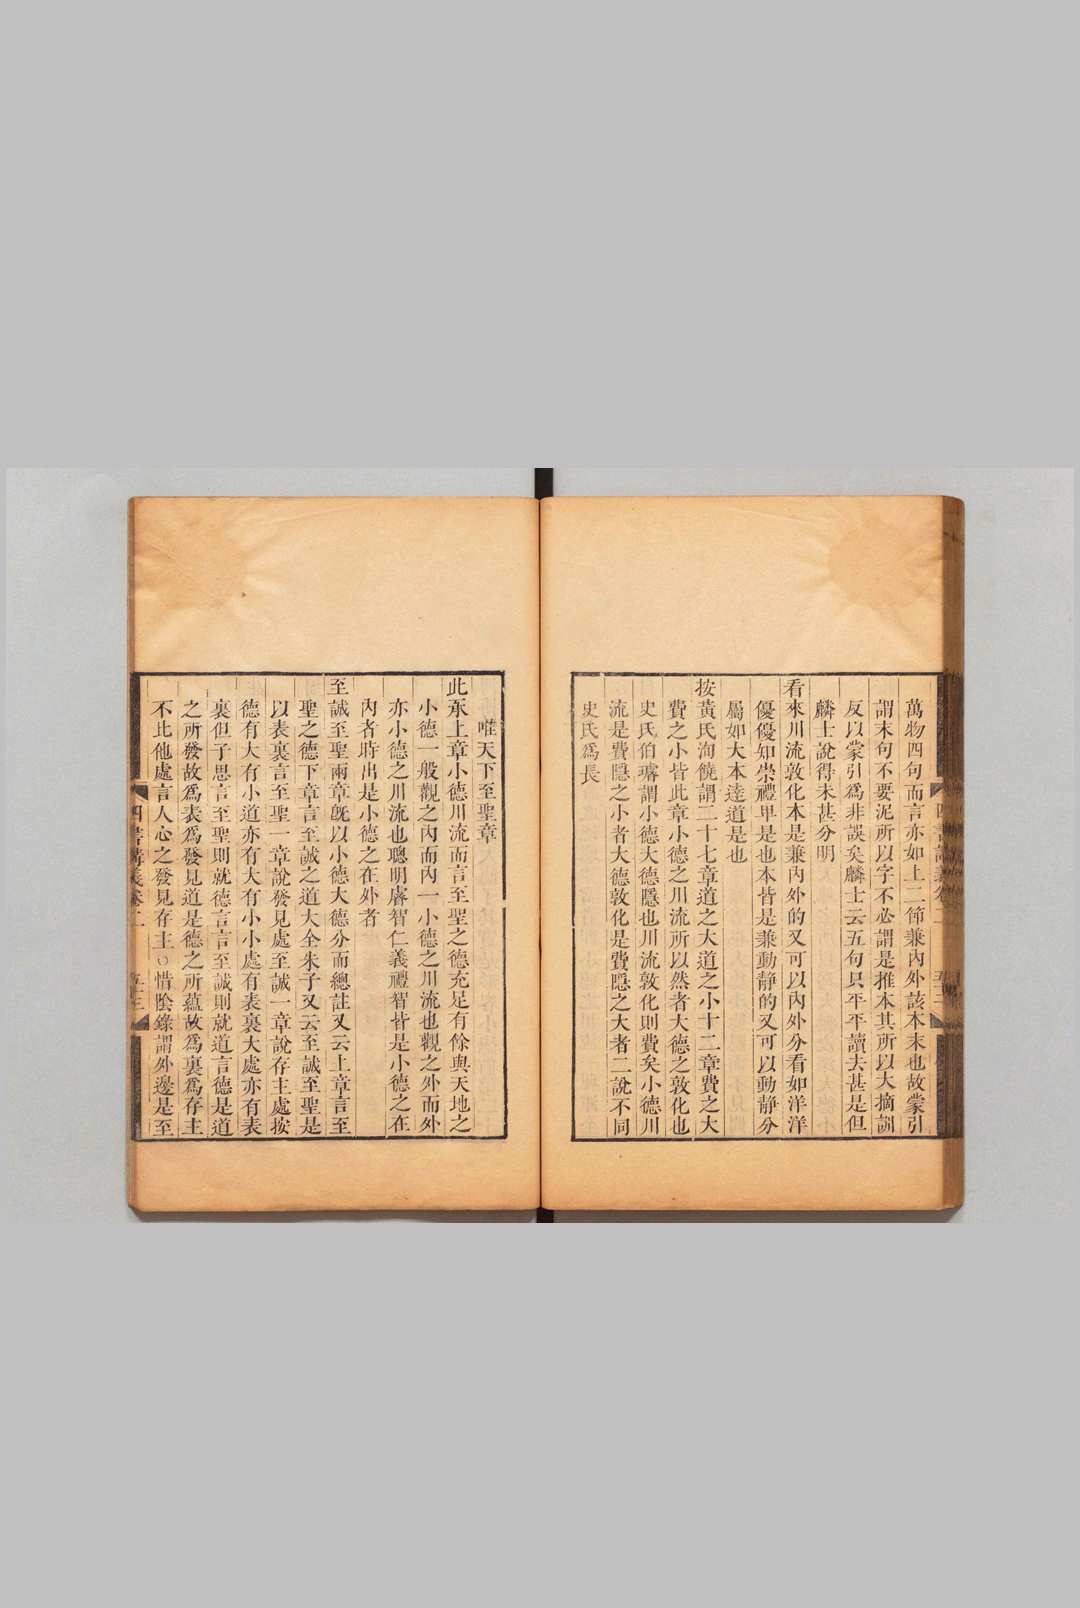 萬物四句而言亦如上二節兼內外該本末也故蒙引
謂末句不要泥所以字不必謂是推本其所以大摘訓
反以蒙引爲非誤矣麟士云五句只平平讀去甚是但
麟士說得未甚分明
看來川流敦化本是兼內外的又可以內外分看如洋洋
優優如崇禮卑是也本皆是兼動靜的又可以動靜分
屬如大本達道是也
按黃氏洵饒謂二十七章道之大道之小十二章費之大
費之小皆此章小德之川流所以然者大德之敦化也
史氏伯璿謂小德大德隱也川流敦化則費矣小德川
流是費隱之小者大德敦化是費隱之大者二說不同
史氏爲長
唯天下至聖章
此承上章小德川流而言至聖之德充足有餘與天地之
小德一般觀之內而內一小德之川流也觀之外而外
亦小德之川流也聰明睿智仁義禮智皆是小德之在
內者時出是小德之在外者
至誠至聖兩章旣以小德大德分而總註又云上章言至
聖之德下章言至誠之道大全朱子又云至誠至聖是
以表裏言至聖一章說發見處至誠一章說存主處按
德有大有小道亦有大有小小處有表裏大處亦有表
裏但子思言至聖則就德言言至誠則就道言德是道
之所發故爲表爲發見道是德之所蘊故爲裏爲存主
不比他處言人心之發見存主○惜陰錄謂外邊是至
四書講義卷二
五十三